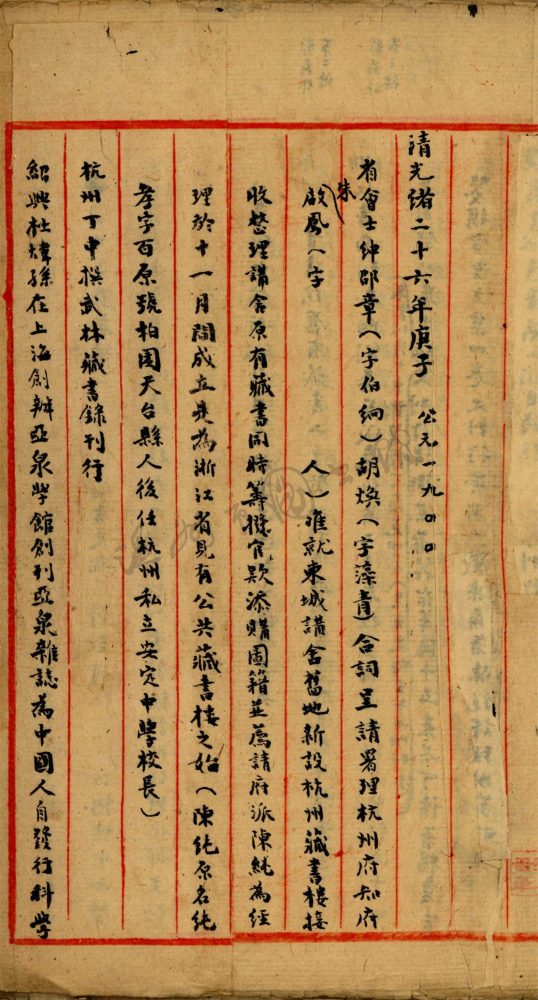 清光緒二十六年庚子 公元一九〇〇
省會士紳邵章(字伯絅)胡煥(字藻青)合詞呈請署理杭州府知府
朱啟鳳(字 人)准就東城講舍舊地新設杭州藏書樓接
收整理講舍原有藏書同時籌撥官款添購圖籍並薦請府派陳純為經
理於十一月間成立是為浙江省見有公共藏書樓之始(陳純原名純
孝字百原號柏園天台縣人後任杭州私立安定中學校長)
杭州丁申撰武林藏書錄刊行
紹興杜煒孫在上海創辦亞泉學館創刊亞泉雜誌為中國人自發行科學